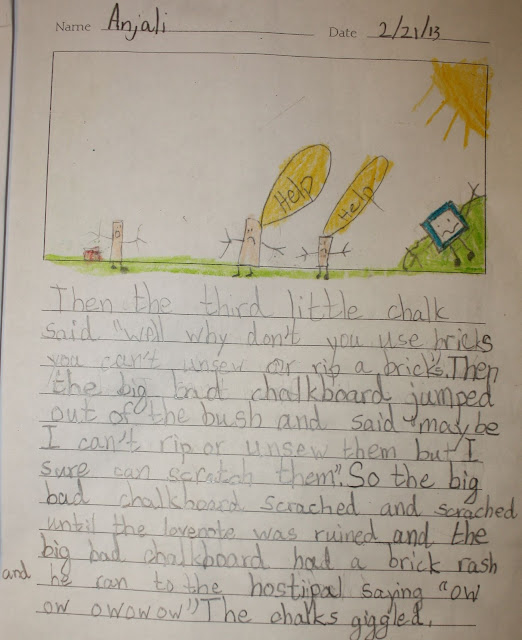 Name Anjali Date 2/21/13
Help
Help
Then the third little chalk
said "Well why don't you use bricks
you can't unsew or rip a bricks. Then
the big bad chalkboard jumped
out of the bush and said "maybe
I can't rip or unsew them but I
sure can scratch them". So the big
bad chalkboard scrached and scrached
until the lovenote was ruined and the
big bad chalkboard had a brick rash
and he ran to the hostipal saying "ow
ow owowow" The chalks giggled.